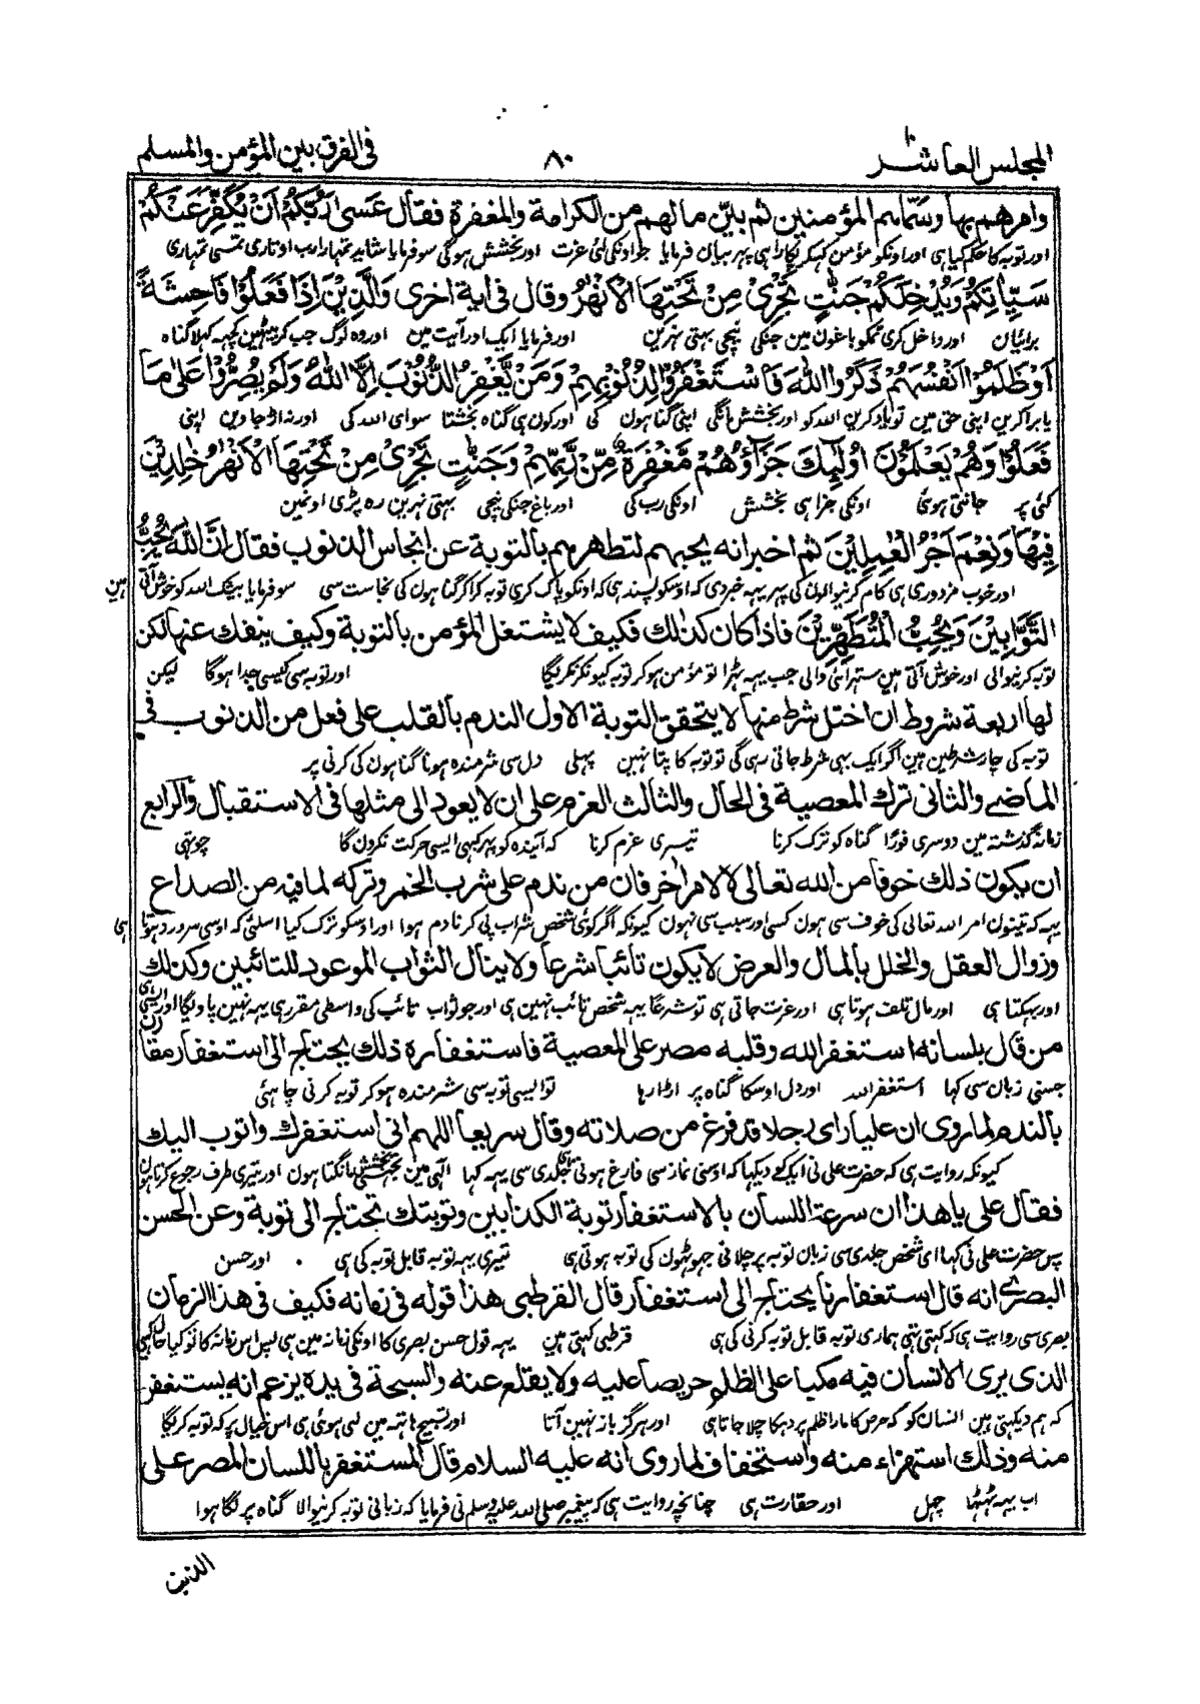 المجلس العاشر ٨٠ فی الفرق بین المؤمن والمسلم
وامرهم بها وسماهم المؤمنين ثم بيّن ما لهم من الكرامة والمغفرة فقال عَسىٰ رَبُّكُمْ اَنْ يُّكَفِّرَ عَنْكُمْ
اور توبہ کا حکم کیا ہی اور اونکو مؤمن کہکر پکارا ہی پہر بیان فرمایا جو اونکی لئی عزت اور بخشش ہوگی سو فرمایا شاید تمہارا رب اوتاری تمسی تمہاری
سَيِّاٰتِكُمْ وَيُدْخِلَكُمْ جَنّٰتٍ تَجْرِيْ مِنْ تَحْتِهَا الْاَنْهٰرُ وقال فی اية اخری وَالَّذِيْنَ اِذَا فَعَلُوْا فَاحِشَةً
برائیان اور داخل کری تمکو باغون مین جنکی نیچی بہتی نہرین اور فرمایا ایک اور آیت مین اور وہ لوگ جب کر بیٹھین کچھ کہلا گناہ
اَوْ ظَلَمُوْا اَنْفُسَهُمْ ذَكَرُوا اللّٰهَ فَاسْتَغْفَرُوْا لِذُنُوْبِهِمْ وَمَنْ يَّغْفِرُ الذُّنُوْبَ اِلَّا اللّٰهُ وَلَمْ يُصِرُّوْا عَلٰى مَا
یا برا کرین اپنی حق مین تو یاد کرین اللہ کو اور بخشش مانگی اپنی گناہون کی اور کون ہی گناہ بخشتا سوای اللہ کی اور نہ اڑ جاوین اپنی
فَعَلُوْا وَهُمْ يَعْلَمُوْنَ اُولٰٓئِكَ جَزَآؤُهُمْ مَّغْفِرَةٌ مِّنْ رَّبِّهِمْ وَجَنّٰتٌ تَجْرِيْ مِنْ تَحْتِهَا الْاَنْهٰرُ خٰلِدِيْنَ
کئی پر جانتی ہوئی اونکی جزا ہی بخشش اونکی رب کی اور باغ جنکی نیچی بہتی نہرین رہ پڑی اونمین
فِيْهَا وَنِعْمَ اَجْرُ الْعٰمِلِيْنَ ثم اخبر انه يحبهم لتطهرهم بالتوبة عن انجاس الذنوب فقال اِنَّ اللّٰهَ يُحِبُّ
اور خوب مزدوری ہی کام کرنیوالون کی پہر یہہ خبر دی کہ اوسکو پسند ہی کہ اونکو پاک کری توبہ کرا کر گناہون کی نجاست سی سو فرمایا بیشک اللہ کو خوش آتی ہین
التَّوَّابِيْنَ وَيُحِبُّ الْمُتَطَهِّرِيْنَ فاذا كان كذلك فكيف لا يشتغل المؤمن بالتوبة وكيف ينفك عنها لكن
توبہ کرنیوالی اور خوش آتی ہین ستہرائی والی جب یہہ ٹہرا تو مؤمن ہو کر توبہ کیونکر نکریگا اور توبہ سی کیسی جدا ہوگا لیکن
لها اربعة شروط ان اختل شرط منها لا يتحقق التوبة الاول الندم بالقلب على فعل من الذنوب فی
توبہ کی چار شرطین ہین اگر ایک بہی شرط جاتی رہی گی تو توبہ کا پتا نہین پہلی دل سی شرمندہ ہونا گناہون کی کرنی پر
الماضی والثانی ترك المعصية فی الحال والثالث العزم على ان لا يعود الى مثلها فی الاستقبال والرابع
زمانۂ گذشتہ مین دوسری فورًا گناہ کو ترک کرنا تیسری عزم کرنا کہ آیندہ کو پہر کبہی ایسی حرکت نکرون گا چوتہی
ان يكون ذلك خوفا من الله تعالى لا لامر اخر فان من ندم على شرب الخمر وتركه لما فيه من الصداع
یہہ کہ تینون امر اللہ تعالی کی خوف سی ہون کسی اور سبب سی نہون کیونکہ اگر کوئی شخص شراب پی کر نادم ہوا اور اوسکو ترک کیا اسلئی کہ اوسی سر درد ہوتا ہی
وزوال العقل والخلل بالمال والعرض لا يكون تائبا شرعا ولا ينال الثواب الموعود للتائبين وكذلك
اور بہکتا ہی اور مال تلف ہوتا ہی اور عزت جاتی ہی تو شرعًا یہہ شخص تائب نہین ہی اور جو ثواب تائب کی واسطی مقرر ہی یہہ نہین پاویگا اور ایسی ہی
من قال بلسانه استغفر الله وقلبه مصر على المعصية فاستغفاره ذلك يحتاج الى استغفار مقارن
جسنی زبان سی کہا استغفر اللہ اور دل اوسکا گناہ پر اڑا رہا تو ایسی توبہ سی شرمندہ ہو کر توبہ کرنی چاہئی
بالندم لما روی ان عليا رای رجلا قد فرغ من صلاته وقال سريعا اللهم انی استغفرك واتوب اليك
کیونکہ روایت ہی کہ حضرت علی نی ایک کو دیکہا کہ اوسنی نماز سی فارغ ہوتی ہی جلدی سی یہہ کہا الہی مین تجہسی بخشش مانگتا ہون اور تیری طرف رجوع کرتا ہون
فقال علی يا هذا ان سرعة اللسان بالاستغفار توبة الكذابين وتوبتك تحتاج الى توبة وعن الحسن
پس حضرت علی نی کہا ای شخص جلدی سی زبان توبہ پر چلانی جہوٹہون کی توبہ ہوتی ہی تیری یہہ توبہ قابل توبہ کی ہی اور حسن
البصری انه قال استغفارنا يحتاج الى استغفار قال القرطبی هذا قوله فی زمانه فكيف فی هذا الزمان
بصری سی روایت ہی کہ کہتی تہی ہماری توبہ قابل توبہ کرنی کی ہی قرطبی کہتی ہین یہہ قول حسن بصری کا اونکی زمانہ مین ہی پس اس زمانہ کا تو کیا حال ہی
الذی يری الانسان فيه مكبا على الظلم حريصا عليه ولا يقلع عنه والسبحة فی يده يزعم انه يستغفر
کہ ہم دیکہتی ہین انسان کو کہ حرص کا مارا ظلم پر دہکا چلا جاتا ہی اور ہرگز باز نہین آتا اور تسبیح ہاتہہ مین لی ہوئی ہی اس خیال پر کہ توبہ کریگا
منه وذلك استهزاء منه واستخفاف لما روی انه عليه السلام قال المستغفر باللسان المصر على
اب یہہ ٹہٹہا چہل اور حقارت ہی چنانچہ روایت ہی کہ پیغمبر صلی اللہ علیہ وسلم نی فرمایا کہ زبانی توبہ کرنیوالا گناہ پر لگا ہوا
الذنب